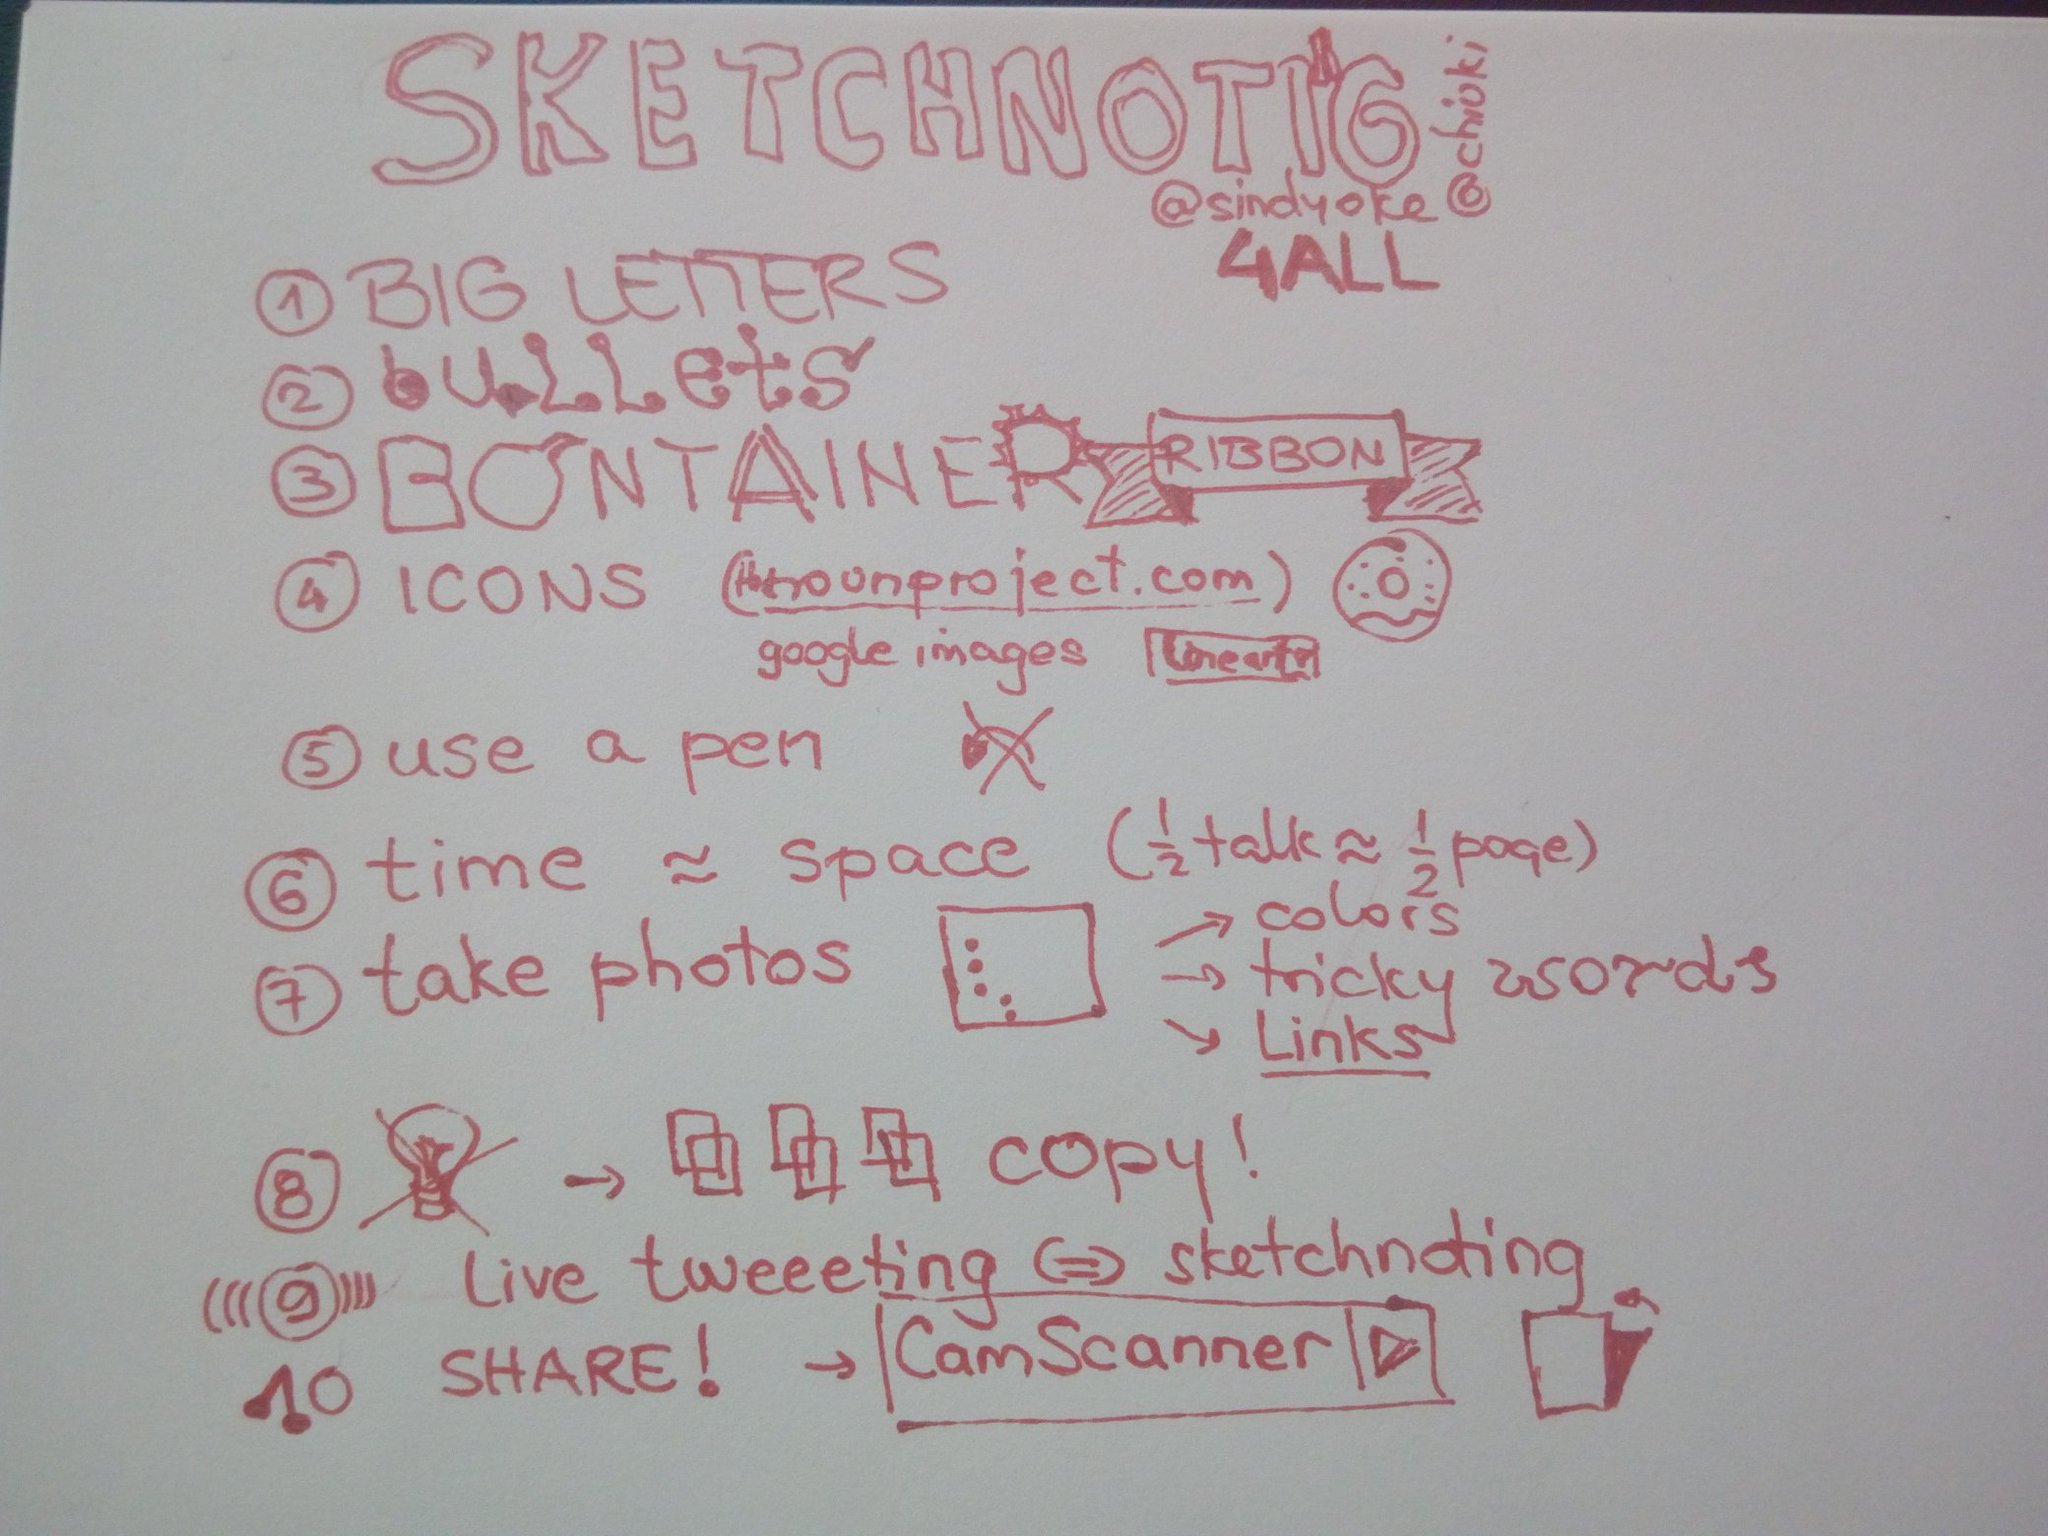 SKETCHNOTI'G
@chiuki
@sindyoke
4ALL
1 BIG LETTERS
2 buLLets
3 BONTAINER RIBBON
4 ICONS (thenounproject.com)
google images
5 use a pen
6 time ≈ space (1/2 talk ≈ 1/2 page)
7 take photos → colors
→ tricky words
→ Links
8 → copy!
(((9))) Live tweeeting <=> sketchnoting
10 SHARE! → CamScanner